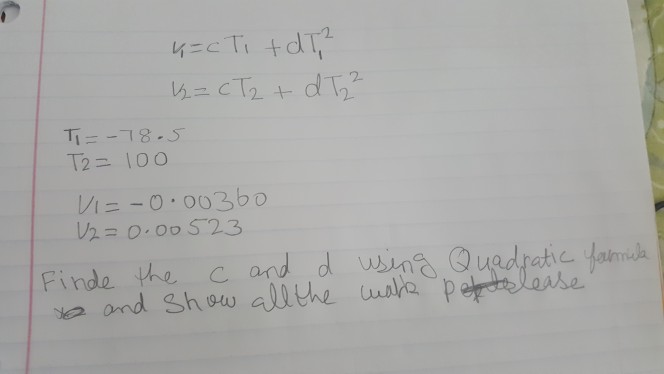 V₁ = cT₁ + dT₁²
V₂ = cT₂ + dT₂²
T₁ = -78.5
T₂ = 100
V₁ = -0.00360
V₂ = 0.00523
Finde the c and d using Quadratic formula
and show all the work please